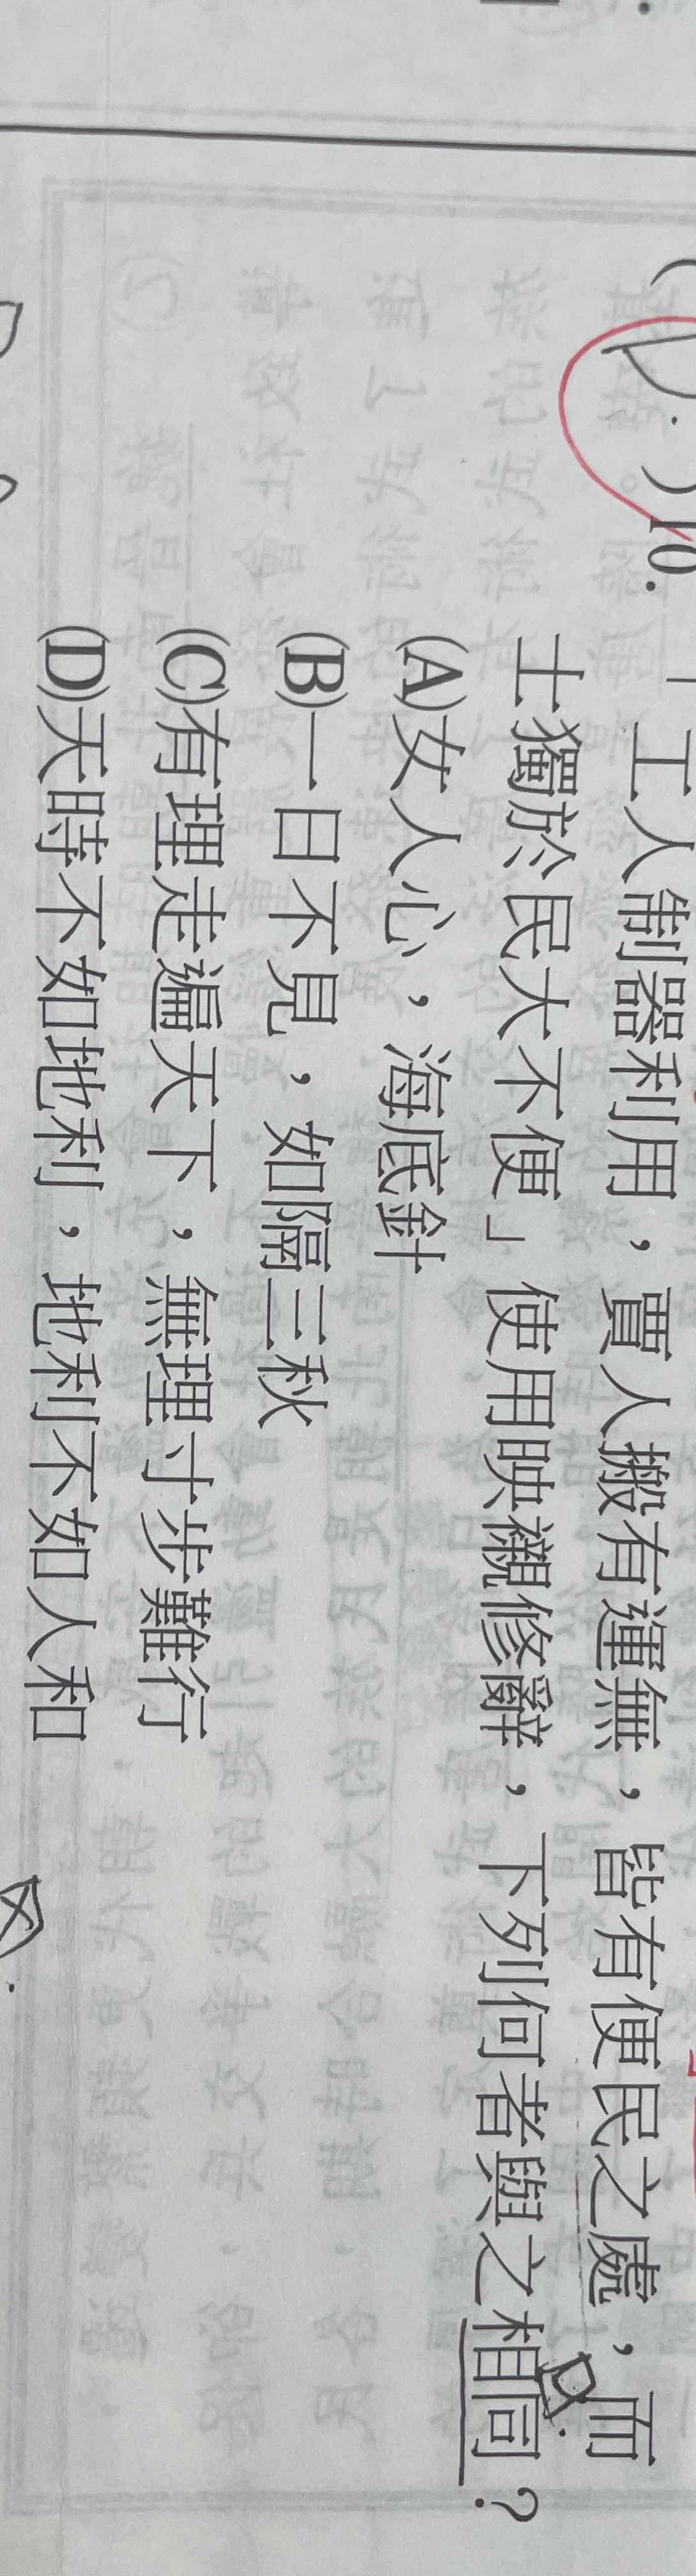 (D.)10.「工人制器利用，賈人搬有運無，皆有便民之處，而
士獨於民大不便」使用映襯修辭，下列何者與之相同？
D.
(A)女人心，海底針
(B)一日不見，如隔三秋
(C)有理走遍天下，無理寸步難行
(D)天時不如地利，地利不如人和